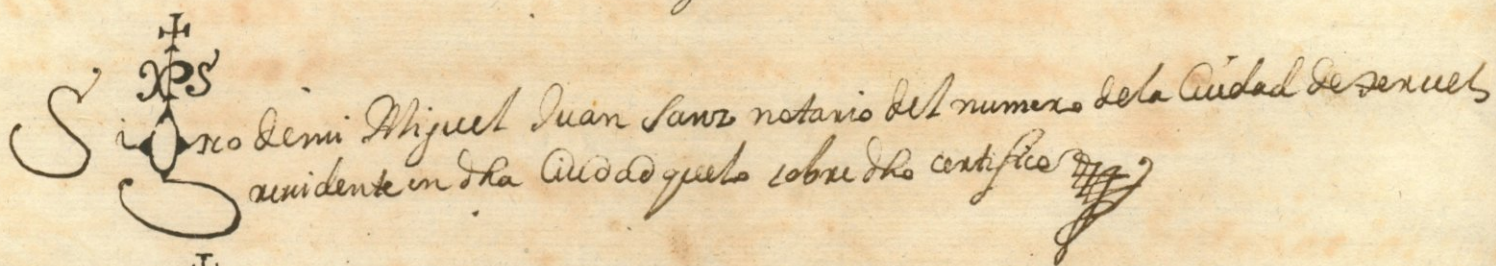 XPS
Signo de mi Miguel Juan Sanz notario del numero de la Ciudad de Teruel
residente en dha Ciudad que lo sobre dho certifico